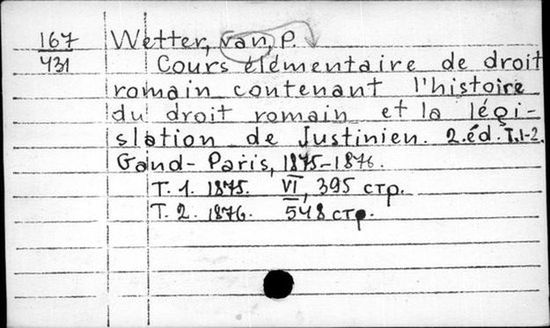 167
431
Wetter, van, P.
Cours élémentaire de droit
romain contenant l'histoire
du droit romain et la légi-
slation de Justinien. 2.éd. T.1-2.
Gand-Paris, 1875-1876.
T. 1. 1875. VI, 395 стр.
T. 2. 1876. 548 стр.